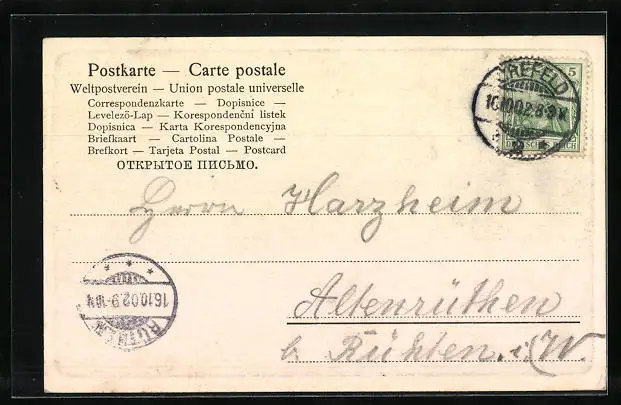 Postkarte — Carte postale
Weltpostverein — Union postale universelle
Correspondenzkarte — Dopisnice —
Levelező-Lap — Korespondenční listek
Dopisnica — Karta Korespondencyjna
Briefkaart — Cartolina Postale —
Brefkort — Tarjeta Postal — Postcard
ОТКРЫТОЕ ПИСЬМО.
5
CREFELD
16.10.02.8-9V.
DEUTSCHES REICH
Herrn Harzheim
16.10.02.9-10N
Altenrüthen
b. Rühten. i/W.